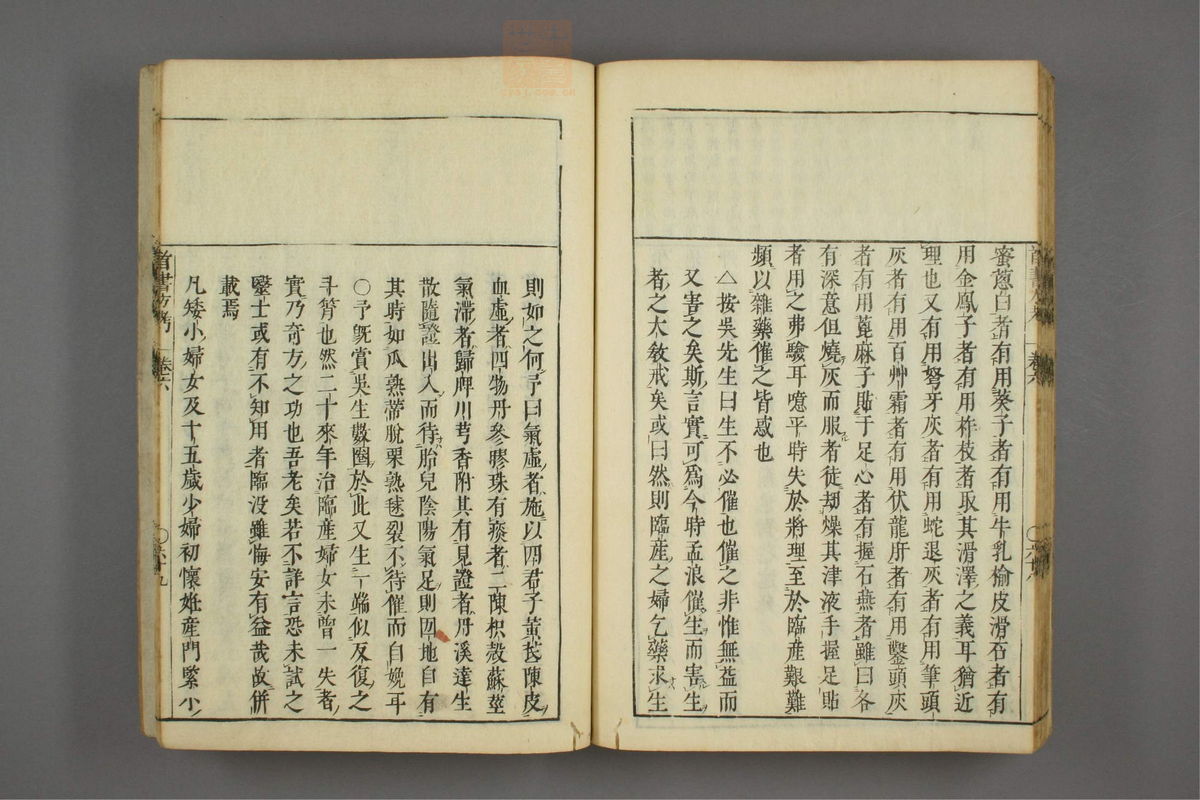 蜜蔥白者有用葵子者有用牛乳榆皮滑石者有
用金鳳子者有用柞枝者取其滑澤之義耳猶近
理也又有用弩牙灰者有用蛇退灰者有用筆頭
灰者有用百艸霜者有用伏龍肝者有用鑿頭灰
者有用蓖麻子貼于足心者有握石燕者雖曰各
有深意但燒灰而服者徒刼燥其津液手握足貼
者用之弗驗耳噫平時失於將理至於臨産艱難
頻以雜藥催之皆惑也
△按吳先生曰生不必催也催之非惟無益而
又害之矣斯言實可為今時孟浪催生而害生
者之大敎戒矣或曰然則臨産之婦乞藥求生
則如之何予曰氣虛者施以四君子黃芪陳皮
血虛者四物丹參膠珠有痰者二陳枳殼蘇莖
氣滯者歸脾川芎香附其有見證者丹溪達生
散隨證出入而待胎兒陰陽氣足則㘞地自有
其時如瓜熟蒂脫栗熟毬裂不待催而自娩耳
○予旣賞吳生數圈於此又生一端似反復之
斗筲也然二十來年治臨産婦女未曾一失者
實乃奇方之功也吾老矣若不詳言恐未試之
毉士或有不知用者臨没雖悔安有益哉故併
載焉
凡矮小婦女及十五歲少婦初懷姙産門緊小
首書方考
卷六
○六十九